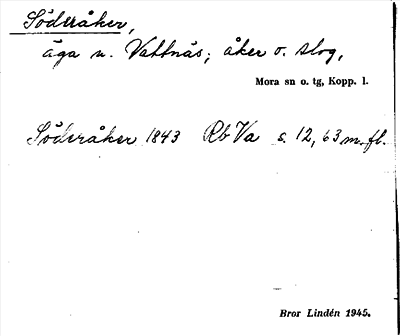 Söderåker,
äga n. Vattnäs; åker o. slog,
Mora sn o. tg, Kopp. l.
Söderåker 1843 Rb Va s. 12, 63 m. fl.
Bror Lindén 1945.